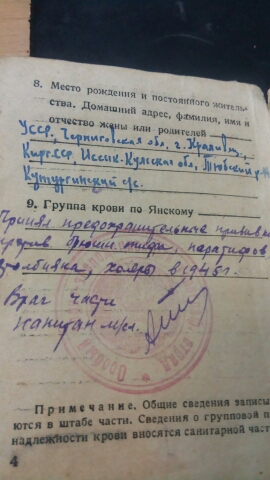 8. Место рождения и постоянного житель-
ства. Домашний адрес, фамилия, имя и
отчество жены или родителей
УССР, Черниговская обл, г.
Кирг.ССР Иссик-Кулская обл, Тюбский р-он
Кутургинский с/с.
9. Группа крови по Янскому
Принял предохранительные прививки
против брюш. тифа, паратифов,
столбняка, холеры в 1946 г.
Врач части
капитан м/сл.
Примечание. Общие сведения записы-
ются в штабе части. Сведения о групповой п
надлежности крови вносятся санитарной част
4